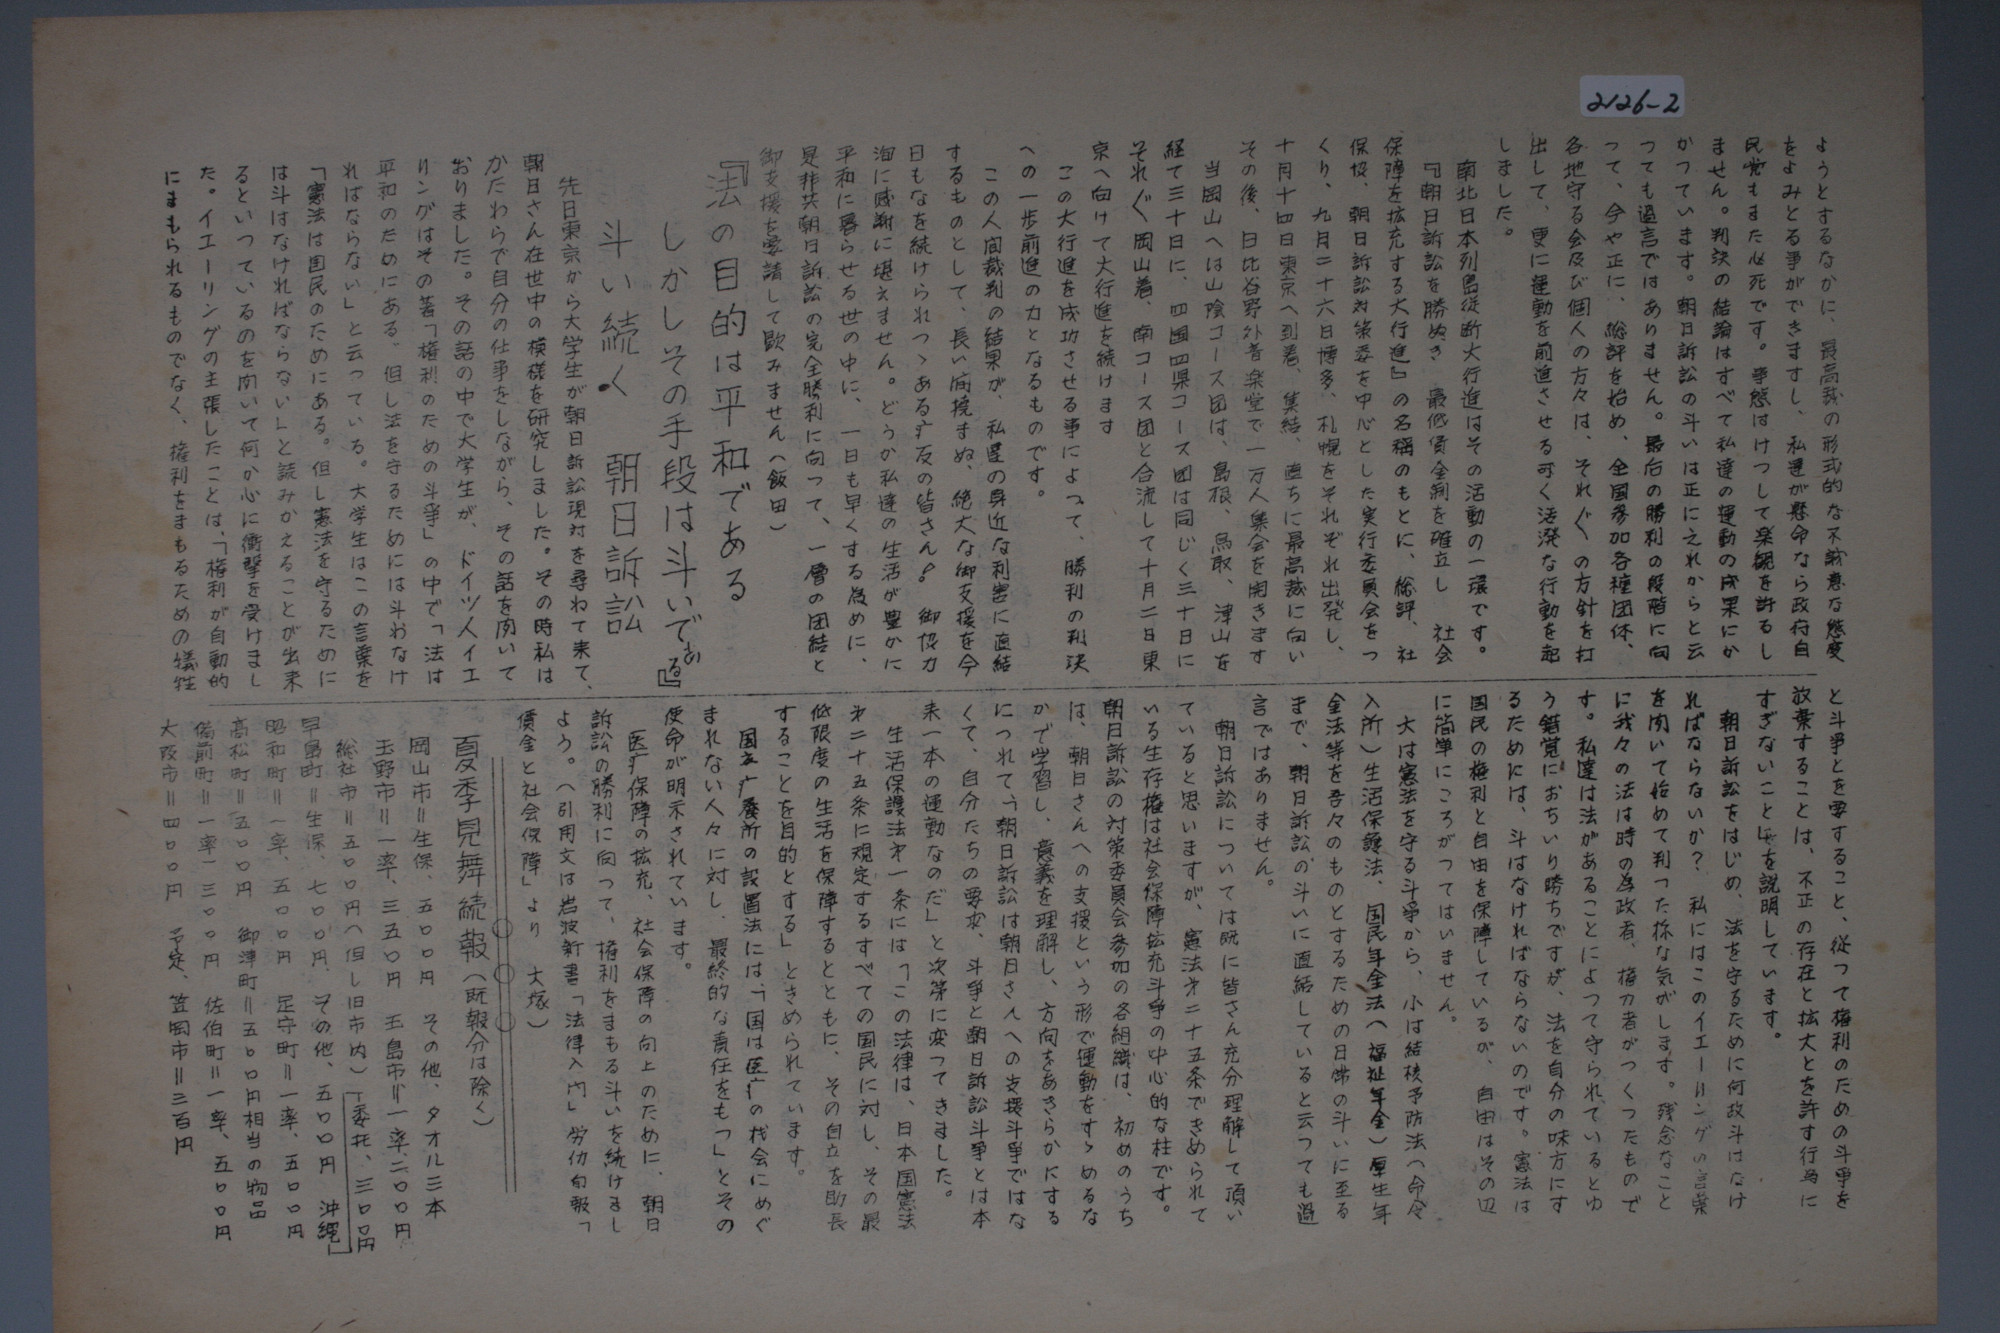 2126-2
ようとするなかに、最高裁の形式的な不誠意な態度
をよみとる事ができますし、私達が懸命なら政府自
民党もまた必死です。事態はけつして楽観を許るし
ません。判決の結論はすべて私達の運動の成果にか
かつています。朝日訴訟の斗いは正にこれからと云
つても過言ではありません。最后の勝利の段階に向
つて、今や正に、総評を始め、全国参加各種団体、
各地守る会及び個人の方々は、それ〲の方針を打
出して、更に運動を前進させる可く活溌な行動を起
しました。
南北日本列島従断大行進はその活動の一環です。
『朝日訴訟を勝ぬき 最低賃金制を確立し 社会
保障を拡充する大行進』の名稱のもとに、総評、社
保協、朝日訴訟対策委を中心とした実行委員会をつ
くり、九月二十六日博多、札幌をそれぞれ出発し、
十月十四日東京へ到着、集結、直ちに最高裁に向い
その後、日比谷野外音楽堂で一万人集会を開きます
当岡山へは山陰コース団は、島根、鳥取、津山を
経て三十日に、四国四県コース団は同じく三十日に
それ〲岡山着、南コース団と合流して十月二日東
京へ向けて大行進を続けます
この大行進を成功させる事によつて、勝利の判決
への一歩前進の力となるものです。
この人間裁判の結果が、私達の身近な利害に直結
するものとして、長い間撓まぬ、絶大な御支援を今
日もなを続けられつゝある疒友の皆さん！ 御協力
洵に感謝に堪えません。どうか私達の生活が豊かに
平和に暮らせる世の中に、一日も早くする為めに、
是非共朝日訴訟の完全勝利に向つて、一層の団結と
御支援を要請して歇みません（飯田）
『法の目的は平和である
しかしその手段は斗いである』
斗い続く 朝日訴訟
先日東京から大学生が朝日訴訟現対を尋ねて来て、
朝日さん在世中の模様を研究しました。その時私は
かたわらで自分の仕事をしながら、その話を聞いて
おりました。その話の中で大学生が、ドイツ人イエ
リングはその著「権利のための斗爭」の中で「法は
平和のためにある。但し法を守るためには斗わなけ
ればならない」と云つている。大学生はこの言葉を
「憲法は国民のためにある。但し憲法を守るために
は斗はなければならない」と読みかえることが出来
るといつているのを聞いて何か心に衝撃を受けまし
た。イエーリングの主張したことは、「権利が自動的
にまもられるものでなく、権利をまもるための犠牲
と斗爭とを要すること、従つて権利のための斗爭を
放棄することは、不正の存在と拡大とを許す行為に
すぎないこと」を説明しています。
朝日訴訟をはじめ、法を守るために何故斗はなけ
ればならないか？ 私にはこのイエーリングの言葉
を聞いて始めて判つた様な気がします。残念なこと
に我々の法は時の為政者、権力者がつくつたもので
す。私達は法があることによつて守られているとゆ
う錯覚におちいり勝ちですが、法を自分の味方にす
るためには、斗はなければならないのです。憲法は
国民の権利と自由を保障しているが、自由はその辺
に簡単にころがつてはいません。
大は憲法を守る斗爭から、小は結核予防法（命令
入所）生活保護法、国民年金法（福祉年金）厚生年
金法等を吾々のものとするための日常の斗いに至る
まで、朝日訴訟の斗いに直結していると云つても過
言ではありません。
朝日訴訟については既に皆さん充分理解して頂い
ていると思いますが、憲法才二十五条できめられて
いる生存権は社会保障拡充斗爭の中心的な柱です。
朝日訴訟の対策委員会参加の各組織は、初めのうち
は、朝日さんへの支援という形で運動をすゝめるな
かで学習し、意義を理解し、方向をあきらかにする
につれて「朝日訴訟は朝日さんへの支援斗爭ではな
くて、自分たちの要求、斗爭と朝日訴訟斗爭とは本
来一本の運動なのだ」と次第に変つてきました。
生活保護法才一条には「この法律は、日本国憲法
才二十五条に規定するすべての国民に対し、その最
低限度の生活を保障するとともに、その自立を助長
することを目的とする」ときめられています。
国立疒養所の設置法には、「国は医疒の机会にめぐ
まれない人々に対し、最終的な責任をもつ」とその
使命が明示されています。
医疒保障の拡充、社会保障の向上のために、朝日
訴訟の勝利に向つて、権利をまもる斗いを続けまし
よう。（引用文は岩波新書「法律入門」労仂旬報「
價金と社会保障」より 大塚）
夏季見舞続報（既報分は除く）
岡山市＝生保、五〇〇円 その他、タオル三本
玉野市＝一率、三五〇円 玉島市＝一率、二〇〇円
総社市＝五〇〇円（但し旧市内）「委托、三〇〇円
早島町＝生保、七〇〇円、その他、五〇〇円 沖縄」
昭和町＝一率、五〇〇円 足守町＝一率、五〇〇円
高松町＝五〇〇円 御津町＝五〇〇円相当の物品
備前町＝一率一三〇〇円 佐伯町＝一率、五〇〇円
大阪市＝四〇〇円 予定、笠岡市＝三百円